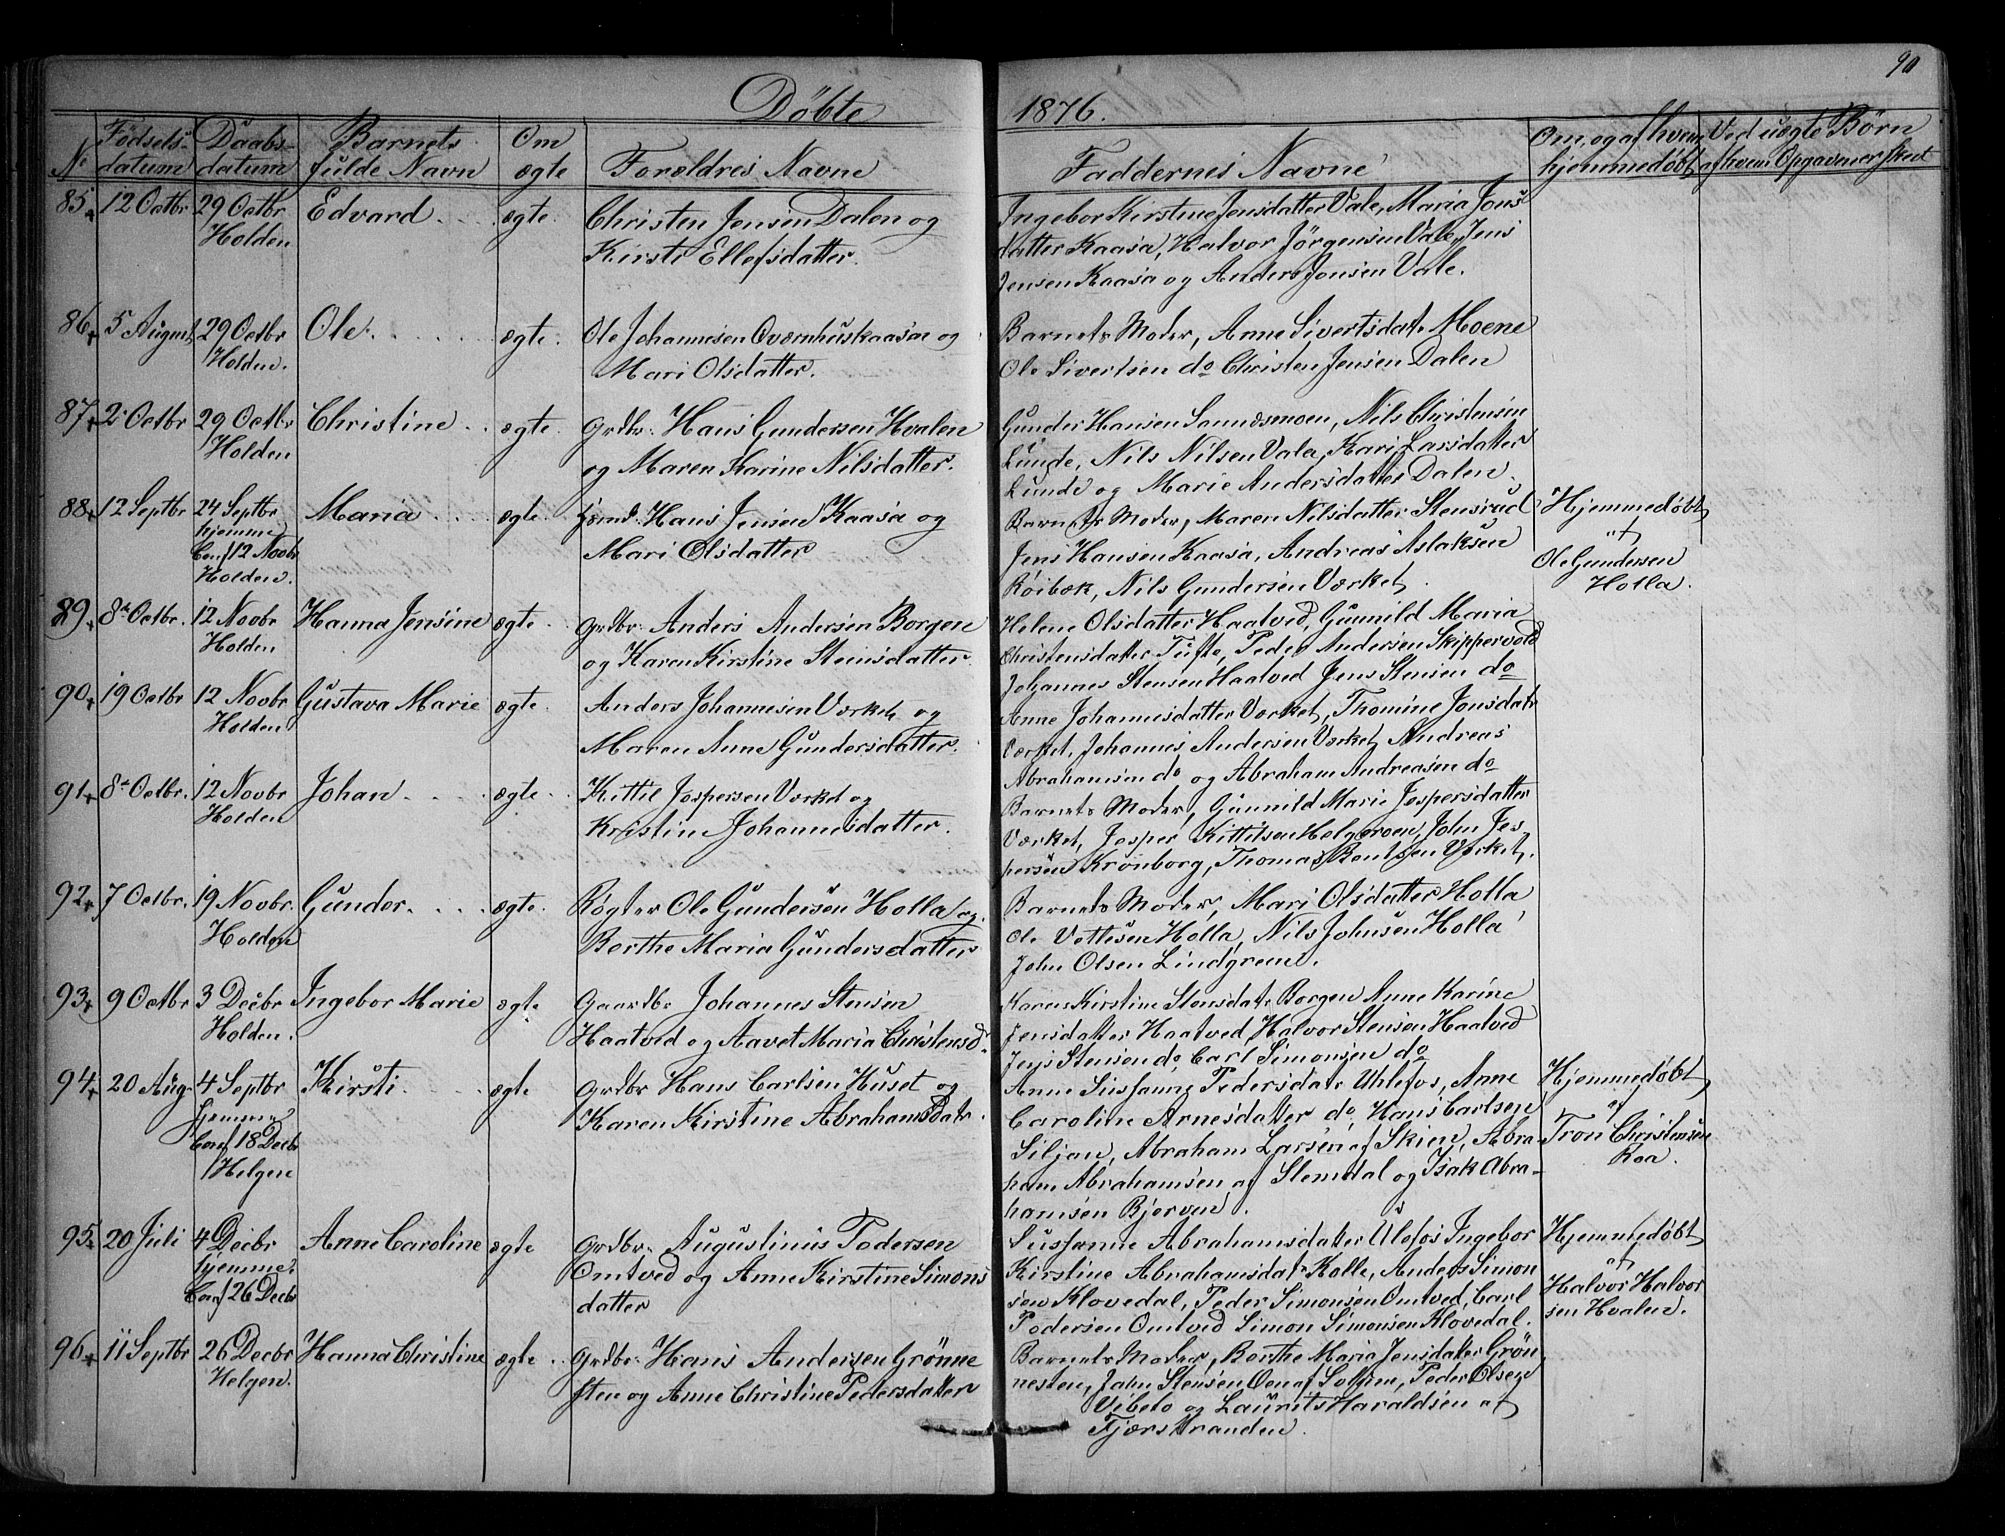 90
Døbte 1876.
No Fødsels-datum Daabs-datum Barnets fulde Navn Om ægte Forældres Navne Faddernes Navne Om, og af hvem hjemmedøbt Ved uægte Børn af hvem Opgavener skeet
85 12 Octbr 29 Octbr Edvard ægte Christen Jensen Dalen og Ingebor Kirstine Jensdatter Vale, Maria Jens
Holden Kirsti Ellefsdatter datter Kaasa, Halvor Jörgensen Vale, Jens
Jensen Kaasa og Anders Jensen Vale.
86 5 August 29 Octbr Ole ægte Ole Johannesen Oværnhuskaasa og Barnets Moder, Anne Sivertsdatr Moene
Holden. Mari Olsdatter. Ole Sivertsen do Christen Jensen Dalen
87 2 Octbr 29 Octbr Christine ægte Grdbr: Hans Gundersen Hvalen Gunder Hansen Sannæsmoen, Nils Christensen
Holden og Maren Karine Nilsdatter. Lunde, Nils Nilsen Vala, Kari Larsdatter
Lunde og Marie Andersdatter Dalen
88 12 Septbr 24 Septbr Maria ægte Hans Jensen Kaasa og Barnets Moder, Maren Nilsdatter Stensrud Hjemmedøbt
hjemme Mari Olsdatter Jens Hansen Kaasa, Andreas Aslaksen af
Conf 12 Novbr Röibæk, Nils Gundersen Værket Ole Gundersen
Holden. Holla.
89 8de Octbr. 12 Novbr Hanna Jensine ægte Grdbr: Anders Andersen Borgen Helene Olsdatter Haatvid, Gunnild Maria
Holden og Karen Kirstine Stensdatter Christensdatter Tufte, Peder Andersen Skippervold
Johannes Stensen Haatved Jens Stensen do
90 19 Octbr 12 Novbr Gustava Marie ægte Anders Johannesen Værket og Anne Johannesdatter Værket, Thomine Jonsdatr
Holden Maren Anne Gundersdatter. Værket, Johannes Andersen Værket Andreas
Abrahamsen do og Abraham Andreasen do
91 8de Octbr. 12 Novbr Johan ægte Kittil Jespersen Værket og Barnets Moder, Gunnild Marie Jespersdatter
Holden Kristine Johannesdatter. Værket, Jesper Kittilsen Helgeroen, John Jes
persen Kronborg, Thomas Bentsen Værket.
92 7 Octbr. 19 Novbr. Gunder ægte Røgter Ole Gundersen Holla og Barnets Moder, Mari Olsdatter Holla
Holden Berthe Maria Gundersdatter Ole Vettesen Holla, Nils Johnsen Holla
John Olsen Lindgren.
93 9 Octbr 3 Decbr Ingebor Marie ægte Gaardbr Johannes Stensen Karen Kirstine Stensdatr Borgen Anne Karine
Holden. Haatved og Aavet Maria Christensd. Jensdatter Haatved, Halvor Stensen Haatved
Jens Stensen do, Carl Simonsen do
94 20 Aug 4 Septbr Kirsti ægte Grdbr Hans Carlsen Huset og Anne Susjanne Pedersdatr Uhlefos, Anne Hjemmedøbt
hjemme Karen Kirstine Abrahamsdatr. Caroline Arnesdatter do, Hans Carlsen af
Conf 18 Decbr Siljan, Abraham Larsen af Skien, Abra- Tron Christensen
Helgen ham Abrahamsen af Slemdal og Isak Abra- Roa.
hamsen Bjerven.
95 20 Juli 4 Decbr Anne Caroline ægte Grdbr: Augustinus Pedersen Susjanne Abrahamsdatter Ulefos Ingebor Hjemmedøbt
hjemme Omtved og Anne Kirstine Simons Kirstine Abrahamsdatr Kolle, Anders Simon af
Conf 26 Decbr datter sen Klovedal, Peder Simonsen Omtved, Carl Halvor Halvor
Pedersen Omtved Simon Simonsen Klovedal. sen Hvalen.
96 11 Septbr 26 Decbr Hanna Christine ægte Grdbr: Hans Andersen Grönne Barnets Moder, Berthe Maria Jensdatter Grön
Helgen. sten og Anne Christine Pedersdatter nesten, John Stensen Oen af Solum, Peder Olsen
Vibeto og Laurits Haraldsen af
Fjærestranden.